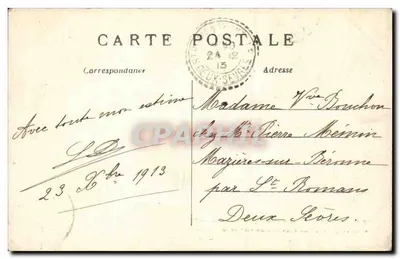 CARTE POSTALE
Correspondance
Adresse
24 12
13
DEUX-SÈVRES
Avec toute mon estime
23 Xbre 1913
Madame Vve Bouchon
chez Mr Pierre Mémin
Mazières-sur-Béronne
par St Romans
Deux Sèvres.
CPAPHIL